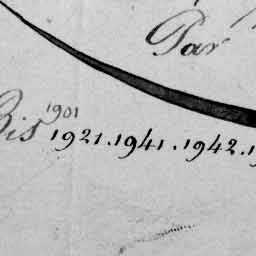 Par
Bis 1901
1921.1941.1942.19